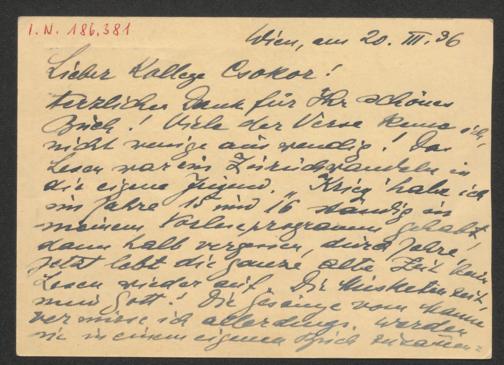 I.N. 186.381
Wien, am 20. III. 36
Lieber Kollege Csokor!
Herzlichen Dank für Ihr schönes
Buch! Viele der Verse kenne ich,
nicht wenige auswendig! Das
Lesen war ein Zurückwandeln in
die eigene Jugend. „Krieg" habe ich
im Jahre 15 und 16 ständig in
meinem Vorleseprogramm gehabt,
dann halb vergessen, durch Jahre!
Jetzt lebt die ganze alte Zeit beim
Lesen wieder auf. Die Musketierzeit,
mein Gott! Die Gesänge vom
vermisse ich allerdings. Werden
sie in einem eigenen Buch zusammen=